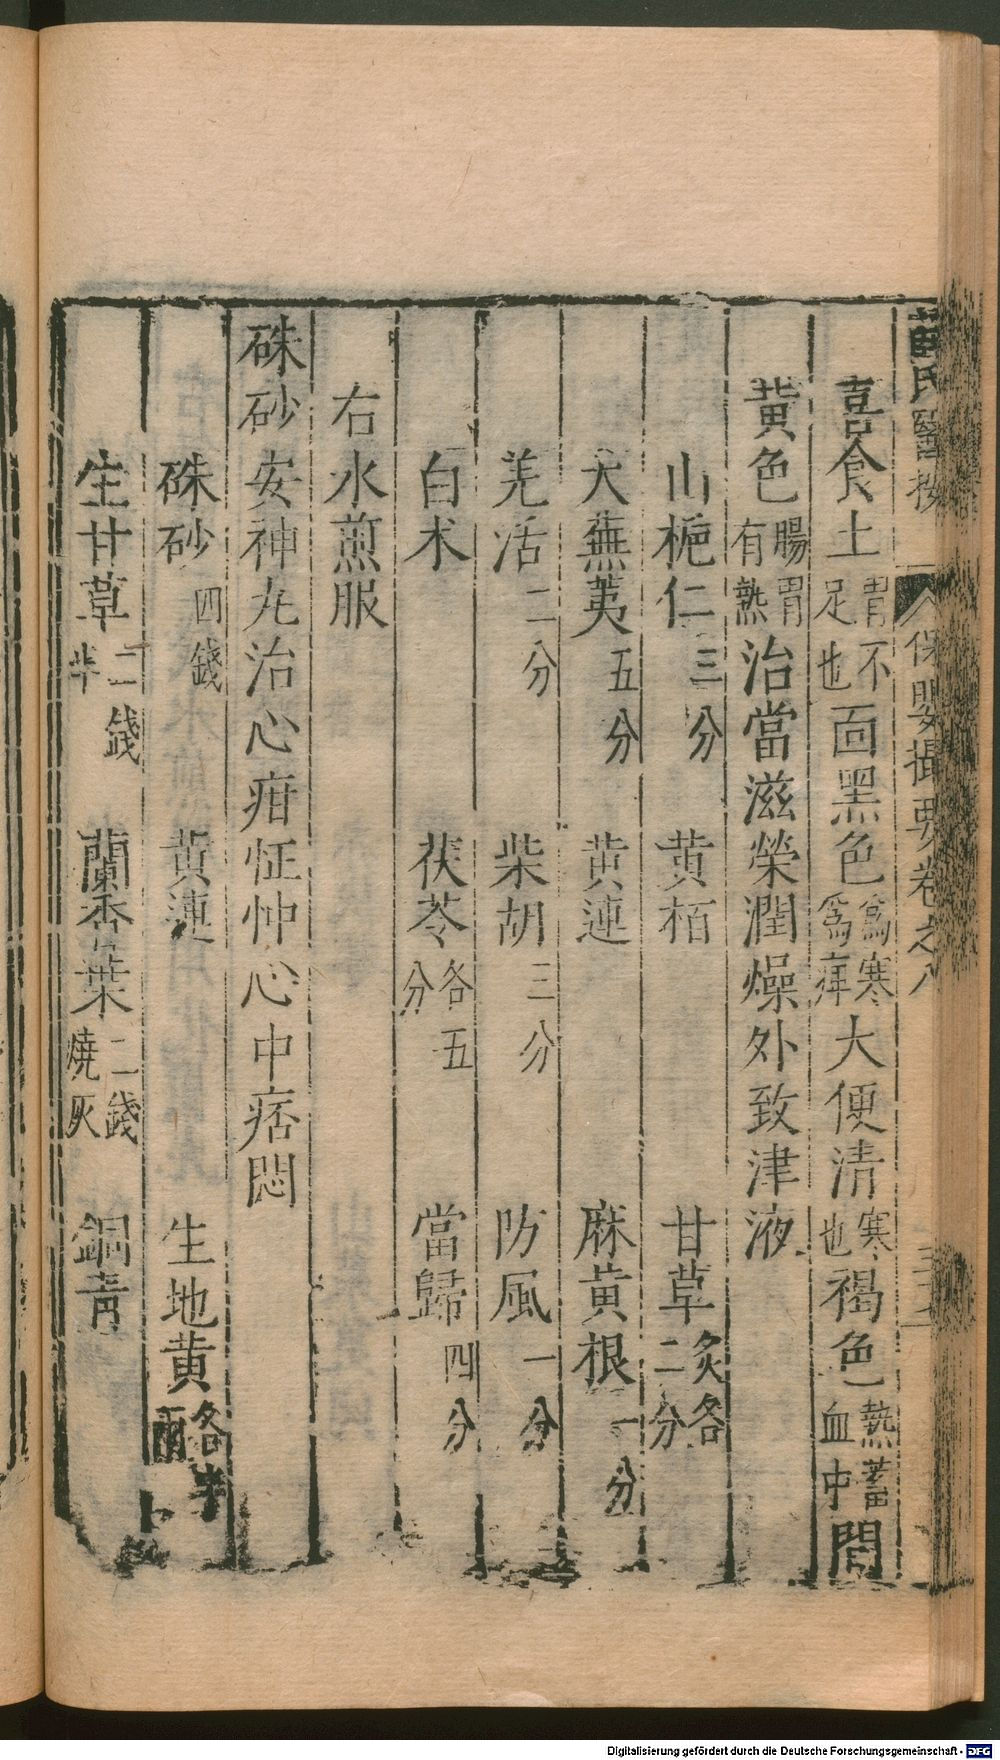 薛氏醫按 保嬰撮要卷之八
喜食土胃不足也面黑色為寒為痒大便清寒也褐色熱蓄血中間
黃色腸胃有熱治當滋榮潤燥外致津液
山梔仁三分 黃栢 甘草炙各二分
大蕪荑五分 黃連 麻黃根一分
羌活二分 柴胡三分 防風一分
白朮 茯苓各五分 當歸四分
右水煎服
硃砂安神丸治心疳怔忡心中痞悶
硃砂四錢 黃連 生地黃各半兩
生甘草二錢半 蘭香葉二錢燒灰 銅青
Digitalisierung gefördert durch die Deutsche Forschungsgemeinschaft - DFG